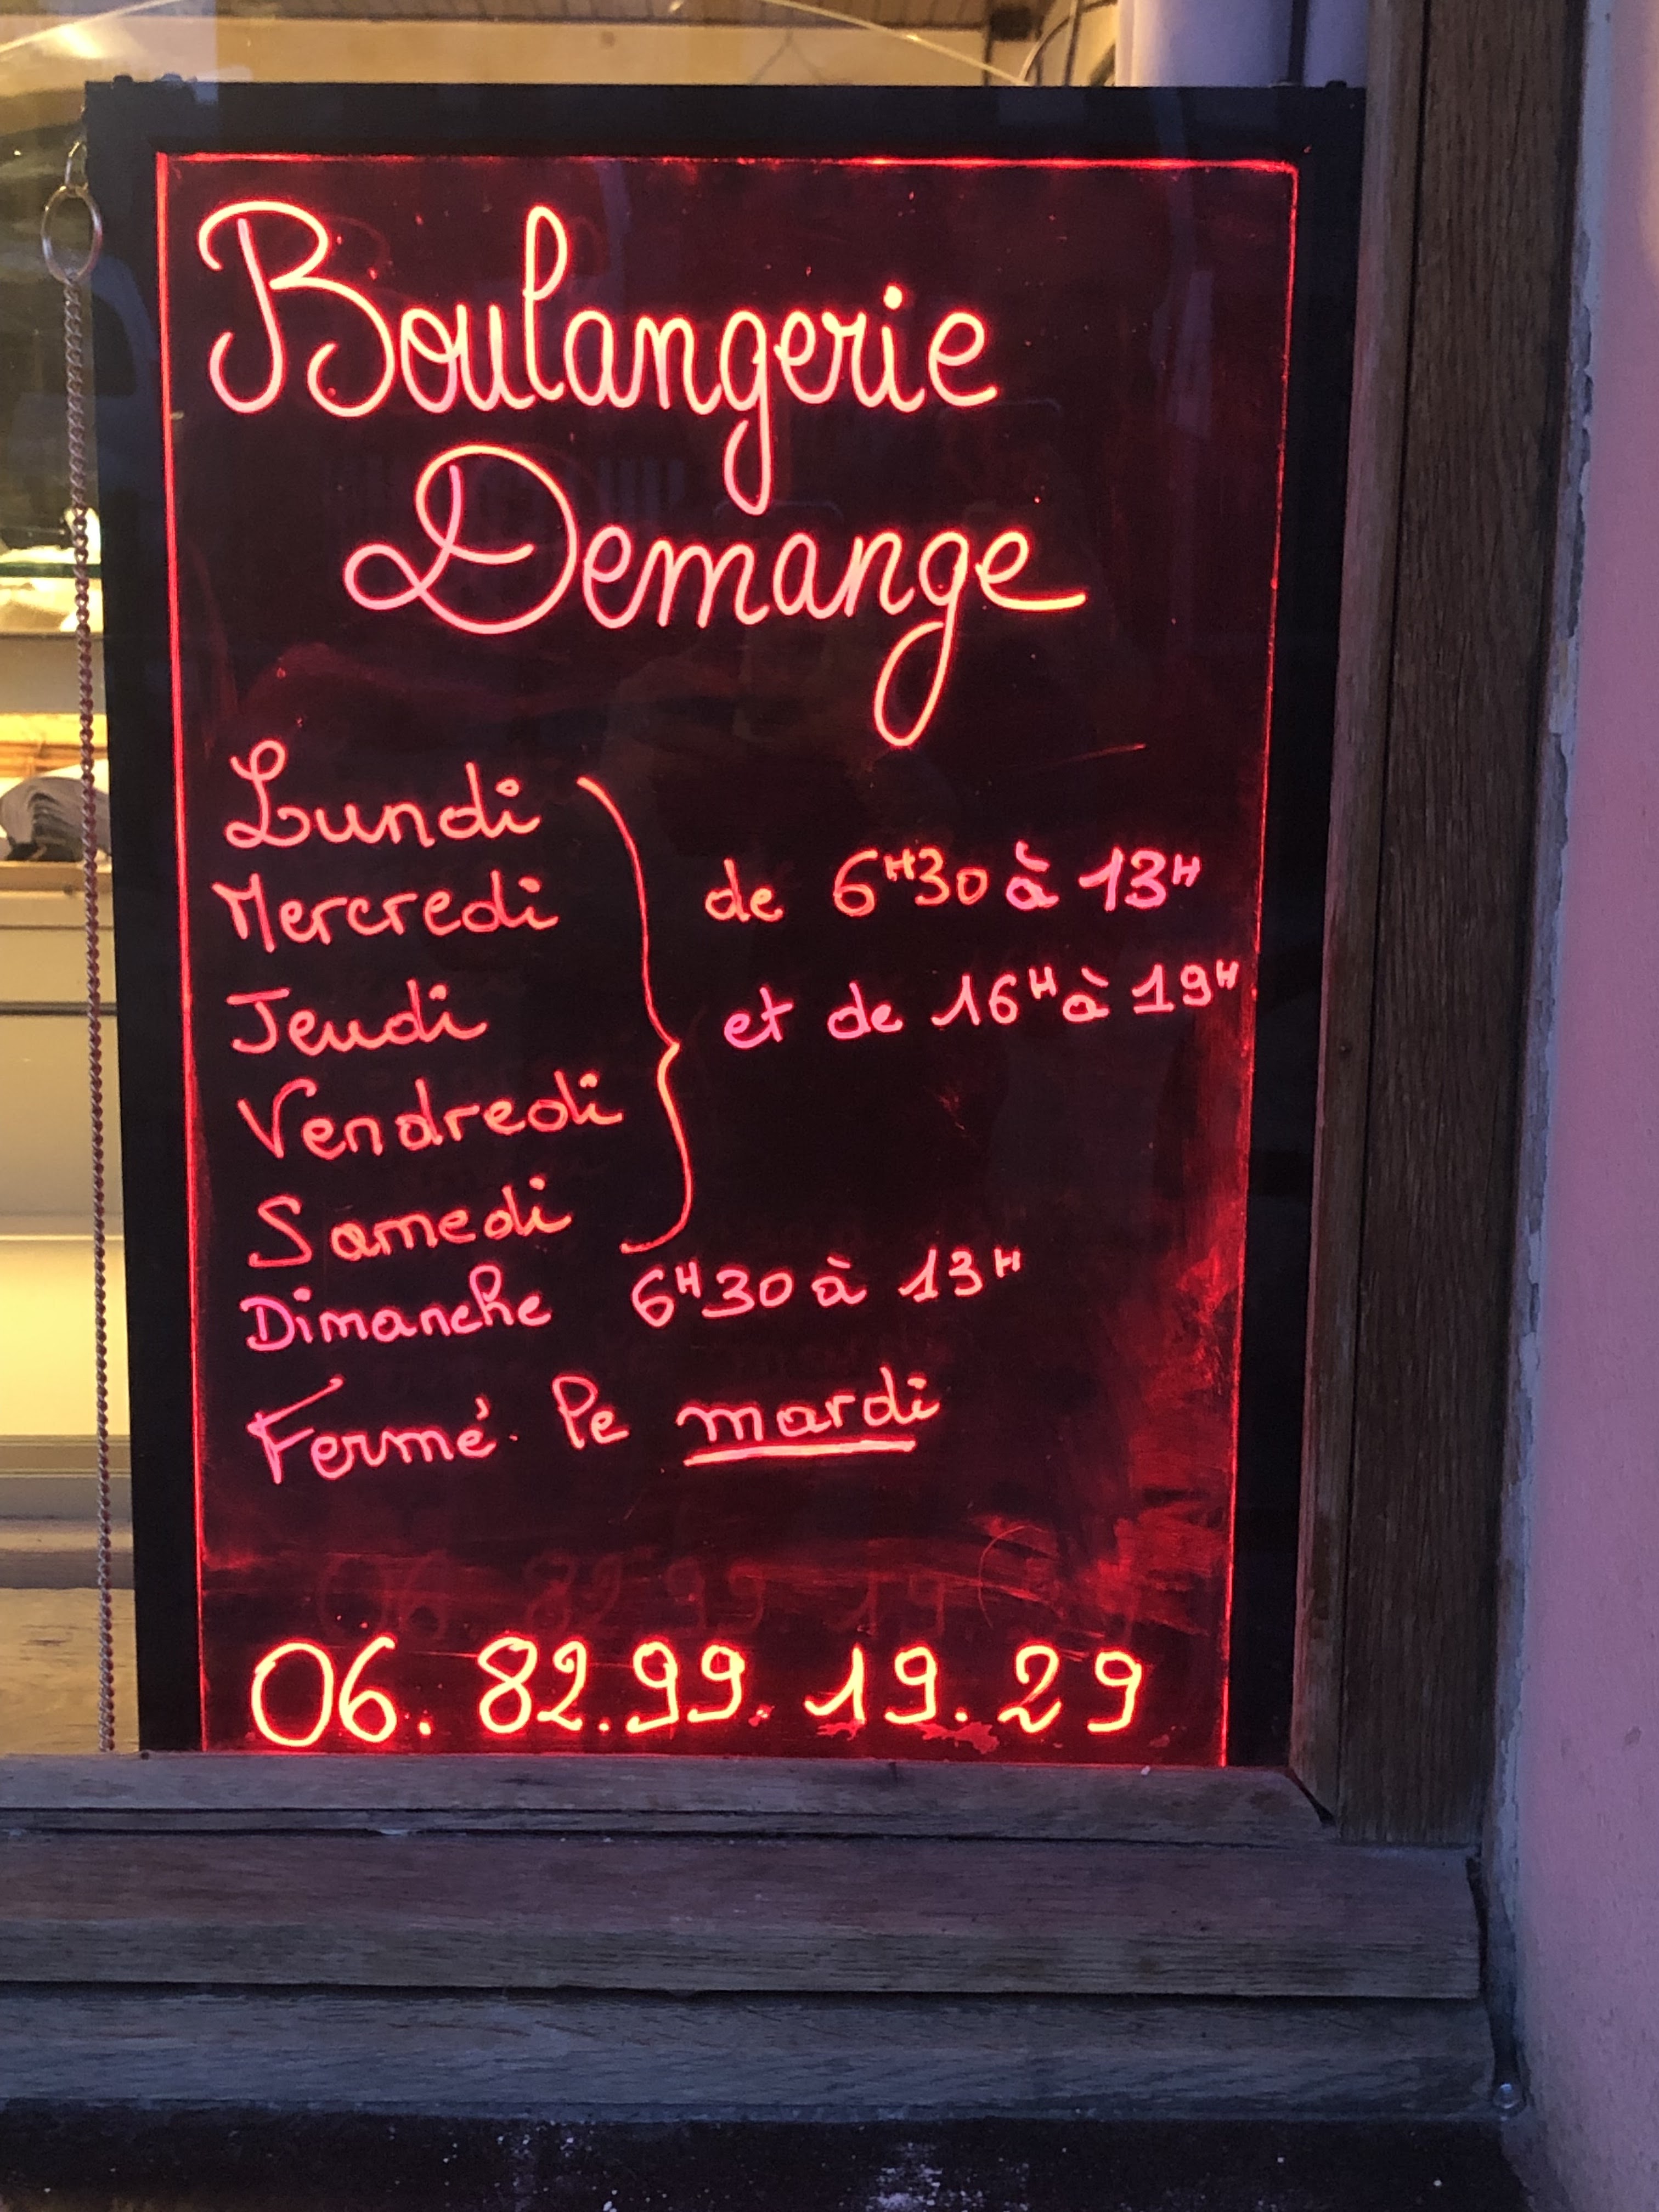 Boulangerie
Demange
Lundi
Mercredi
Jeudi
Vendredi
Samedi
de 6H30 à 13H
et de 16H à 19H
Dimanche 6H30 à 13H
Fermé le mardi
06. 82.99. 19. 29